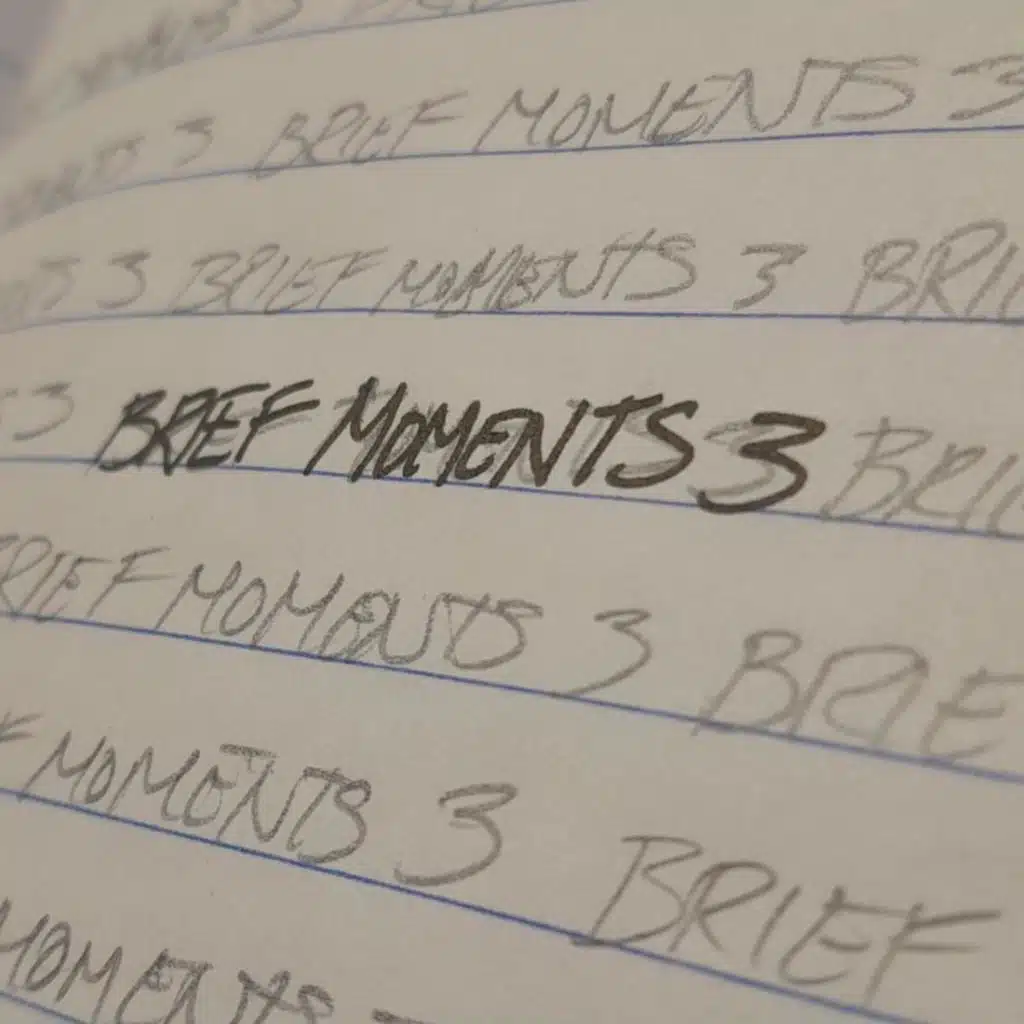 3 BRIEF MOMENTS 3
3 BRIEF MOMENTS 3 BRI
3 BRIEF MOMENTS 3 BRIE
RIEF MOMENTS 3 BRIE
MOMENTS 3 BRIEF
MOMENTS